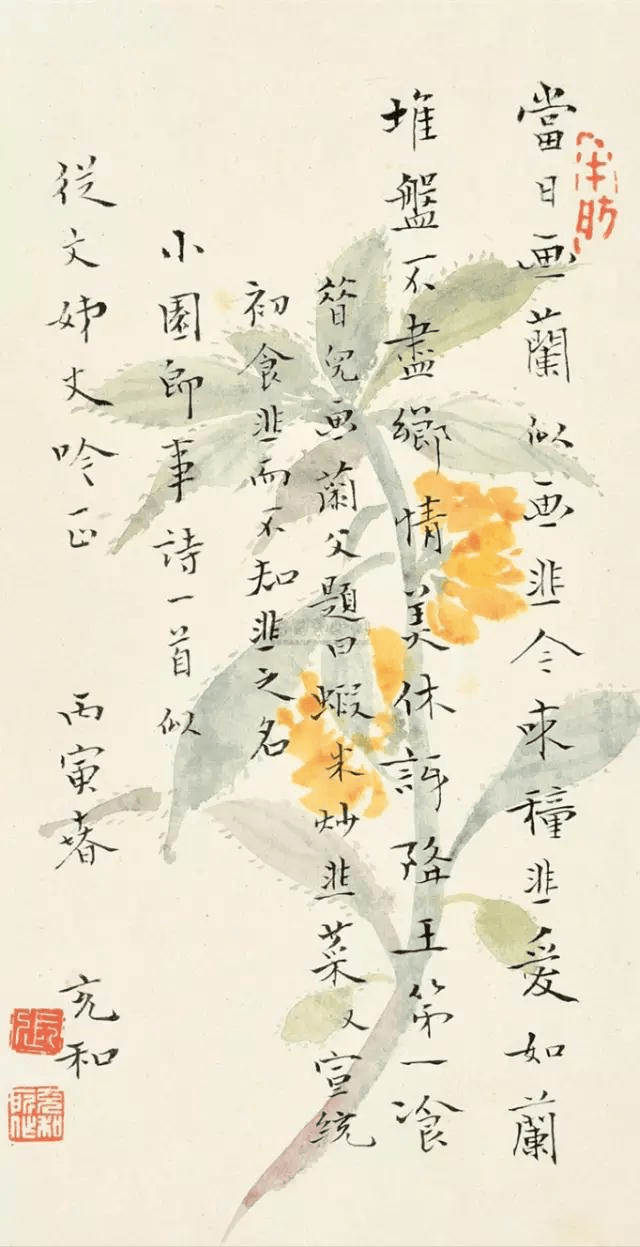 當日画蘭似画韭今来種韭愛如蘭
堆盤不盡鄉情美休訝降王第一飡
昔兒画蘭父題曰蝦米炒韭菜又宣統
初食韭而不知韭之名
小園即事詩一首似
從文姊丈吟正
丙寅春 充和
張